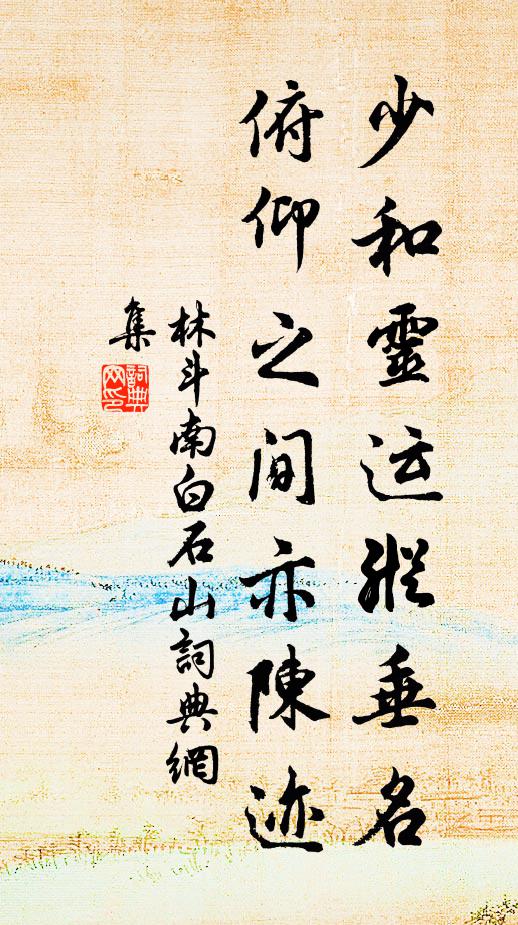 少和靈运縱垂名
俯仰之间亦陳迹
林斗南白石山詞典網
集
詞典
网印